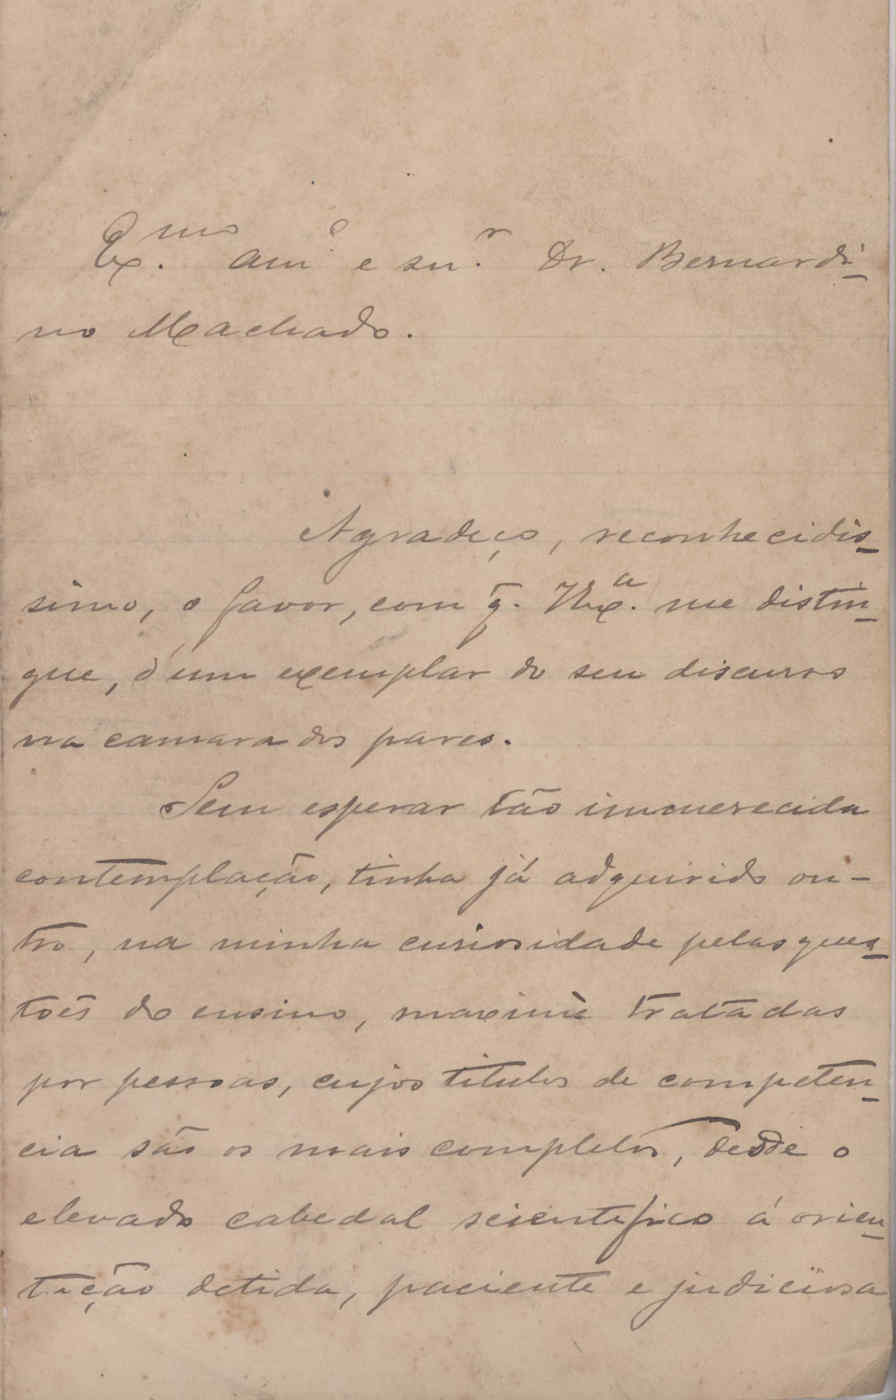 Ex.mo am.o e sn.r Dr. Bernardi-
no Machado.
Agradeço, reconhecidis-
simo, o favor, com q̃. V.Ex.a me distin-
gue, d'um exemplar do seu discurso
na camara dos pares.
Sem esperar tão immerecida
contemplação, tinha já adquirido ou-
tro, na minha curiosidade pelas ques-
toẽs do ensino, maximè tratadas
por pessoas, cujos titulos de competen-
cia são os mais completos, desde o
elevado cabedal scientifico á orien-
tação detida, paciente e judiciosa